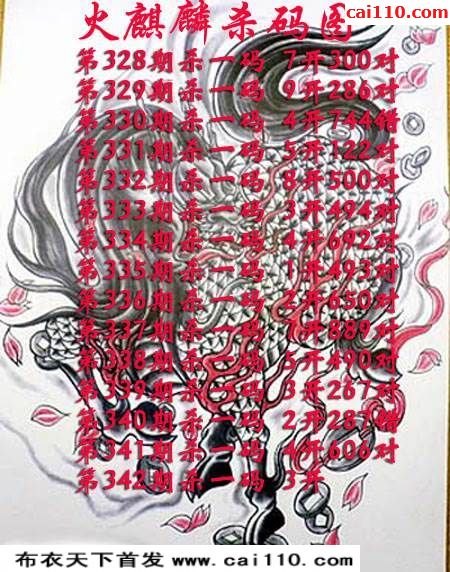 cai110.com
火麒麟杀码图
第328期杀一码 7开300对
第329期杀一码 9开286对
第330期杀一码 4开744错
第331期杀一码 5开122对
第332期杀一码 8开500对
第333期杀一码 3开494对
第334期杀一码 4开692对
第335期杀一码 1开493对
第336期杀一码 2开650对
第337期杀一码 1开889对
第338期杀一码 5开490对
第339期杀一码 3开267对
第340期杀一码 2开287错
第341期杀一码 4开606对
第342期杀一码 3开
布衣天下首发 www.cai110.com